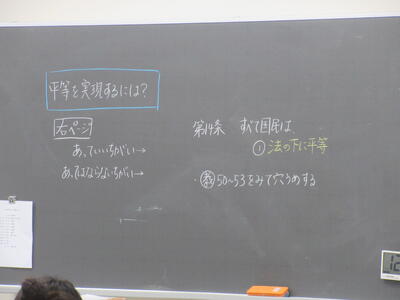 平等を実現するには?
右ページ
あっていいちがい→
あってはならないちがい→
第14条 すべて国民は
① 法の下に平等
・教50~53をみて穴うめする
12